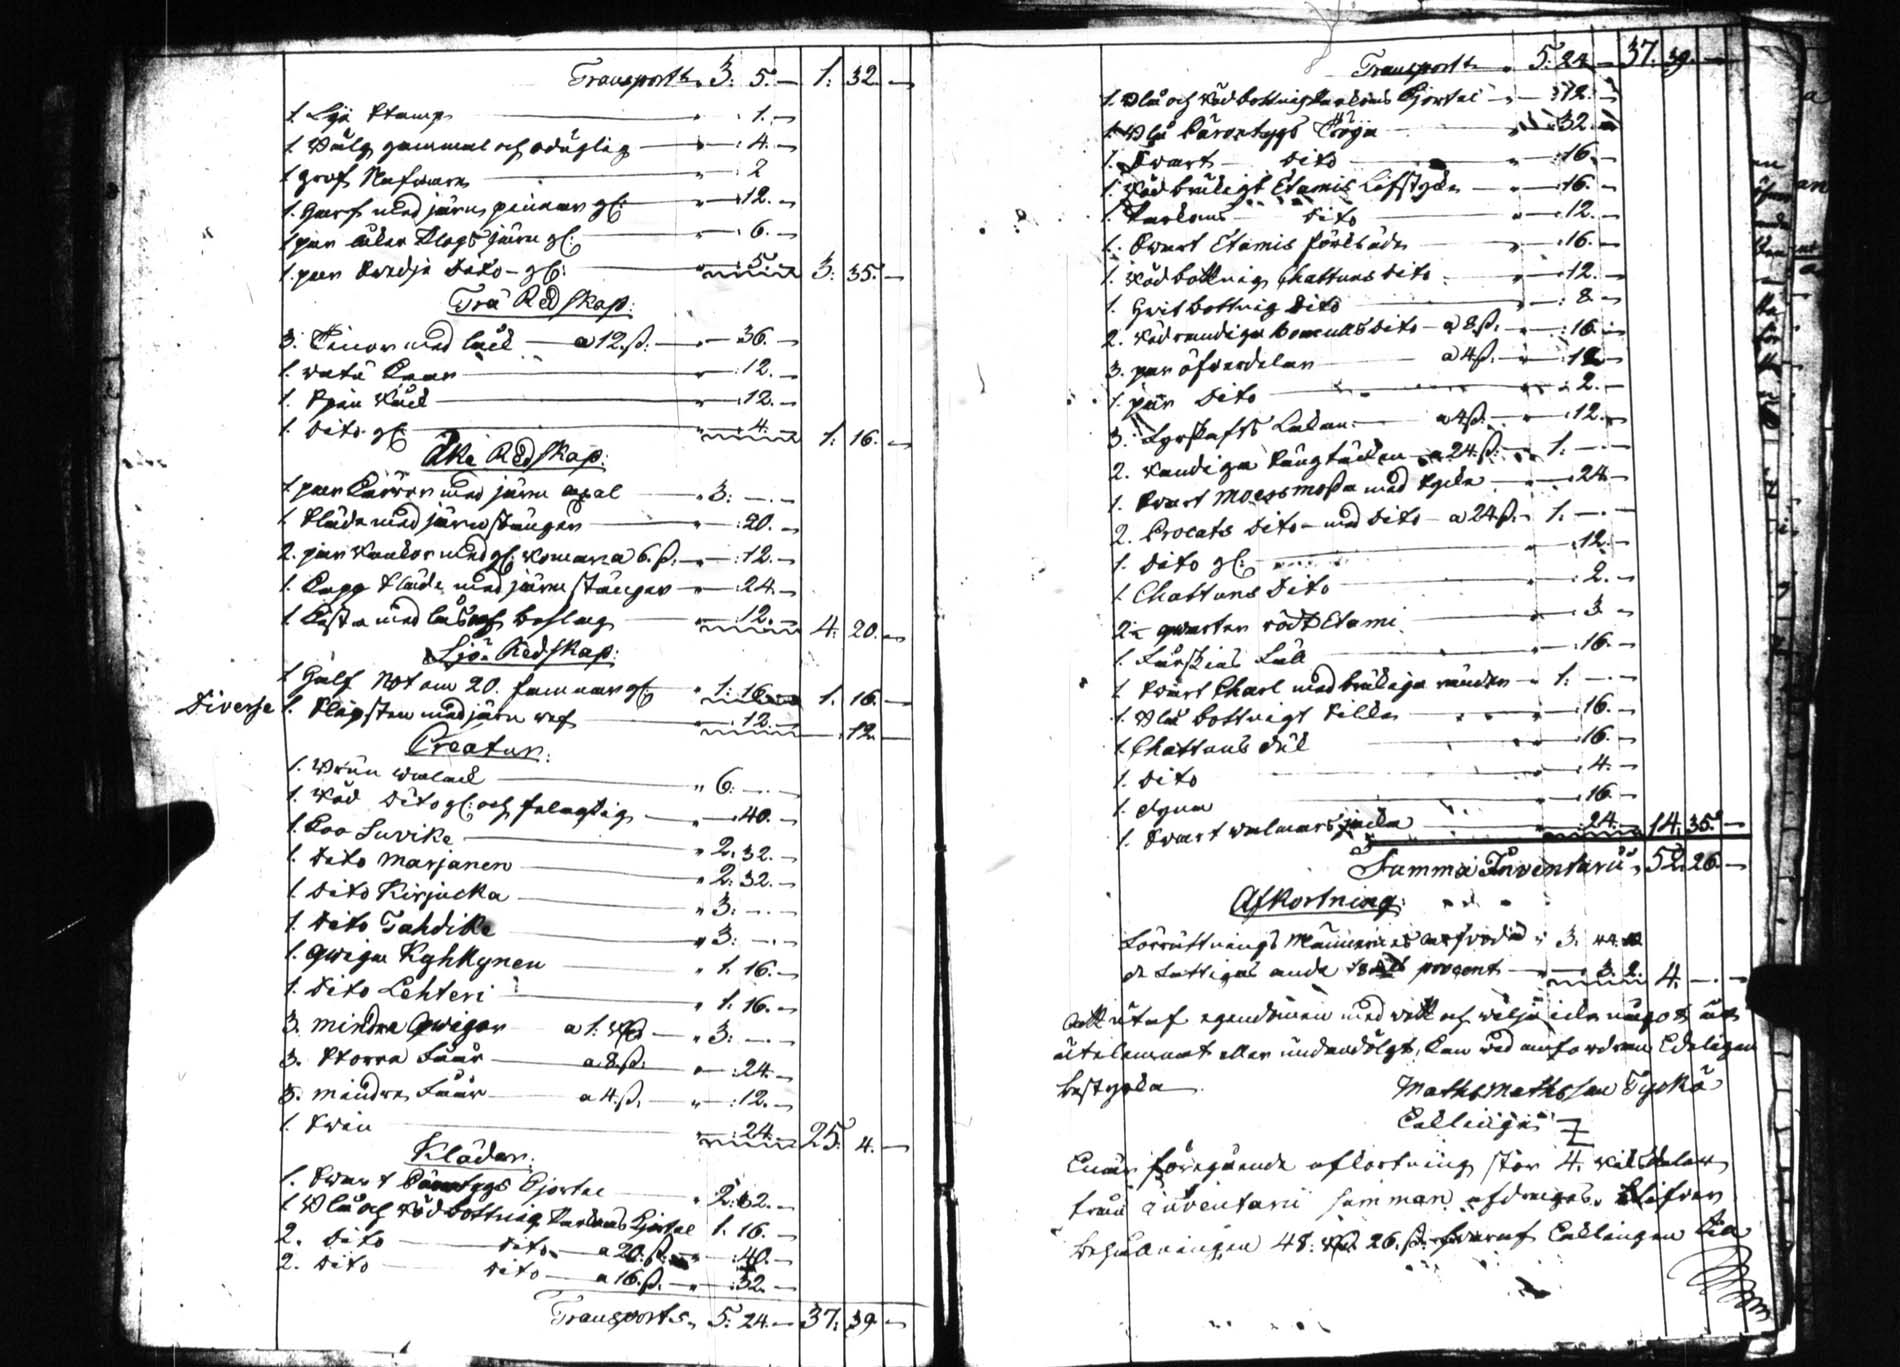 Transport 3: 5. 1: 32
1 Lijs Stamp 1.
1 Bälg gammal och oduglig 4.
1 grof Nafware 2
1. Harf med järn pinnar gl: 12.
1 par åker Plogs järn gl: 6.
1. par Swedje Dito gl: 5. 3: 35.
Trä Redskap:
3: Tinor med lock a 12 ß: 36.
1. watu Kaar 12.
1. Spin Råck 12.
1. Dito gl: 4. 1: 16.
Åke Redskap:
1 par Kärror med järn axal 3:
1 Släda med järnstänger 20.
2. par Rankor med gl: Romar a 6 ß. 12.
1. Kapp Släde med järnstänger 24
1 Kista med lås och beslag 12. 4: 20.
Sjö Redskap:
1 Half Not om 20. famnar gl: 1: 16 1: 16.
Diverse 1. Slipsten med järn wef 12. 12
Creatur:
1. Brun walack 6.
1. Röd Dito gl: och felagtig 40.
1. Koo Suvike 2: 32.
1. Dito Marjanen 2: 32.
1. Dito Kirjacka 3:
1. Dito Tähdike 3:
1. Qwiga Kyhkynen 1. 16.
1. Dito Lehteri 1. 16.
3. mindre Qwigor a 1: Rd 3:
3. Storra Fåår a 8 ß. 24.
3. mindre Fåår a 4 ß. 12.
1. Swin 24. 25. 4.
Kläder:
1. Swart Kamtygs Kjortel 2: 32.
1 Blå och Rödbottnig Kjortel 1. 16.
2. Dito Dito a 20. ß. 40.
2. Dito Dito a 16. ß. 32.
Transport 5: 24. 37: 39
Transport 5: 24 37: 39.
1. Blå och Rödbottnig Kjortel 12.
1. Blå Tröja 32.
1. Swart Dito 16.
1. Rödbrukigt Etamis Lifstycke 16.
1. Dito 12.
1. Swart Etamis förkläde 16.
1. Röd bottnig Chattuns Dito 12.
1. Hvit bottnig Dito 8.
2. Rödrandiga Bomulls Dito a 8 ß. 16.
3. par öfverdelar a 4 ß. 12
1. par Dito 2.
3. Lakan a 4 ß. 12.
2. Randiga Sängtäcken a 24 ß. 1:
1. Swart Mösa med stycke 24
2. Brocats Dito med Dito a 24 ß. 1.
1. Dito gl: 12.
1 Chattuns Dito 2.
2 qwarter rödt Etami 3
1. Fårskins Fäll 16.
1 Swart Charl med brokiga ränder 1:
1. Blå bottnigt Silke 16.
1. Chattuns Duk 16.
1. Dito 4.
1. 16.
1. Swart walmars jacka 24. 14. 35.
Summa Inventarii 52. 26.
Afkortning:
Förrättnings Männernes arfvode 3. 44
de Fattigas andel procent 3. 2. 4.
Att utaf egendomen med wett och wilja icke något är
utelemnat eller undandölgt, kan wid anfordran Edeligen
bestyrka
Maths Mathsson Tyskä
Callinge
Emär föregående afkortning stor 4 Riksdaler
från Inventarii Summan afdrages, blifver
behållningen 48: Rd 26. ß. hwaraf